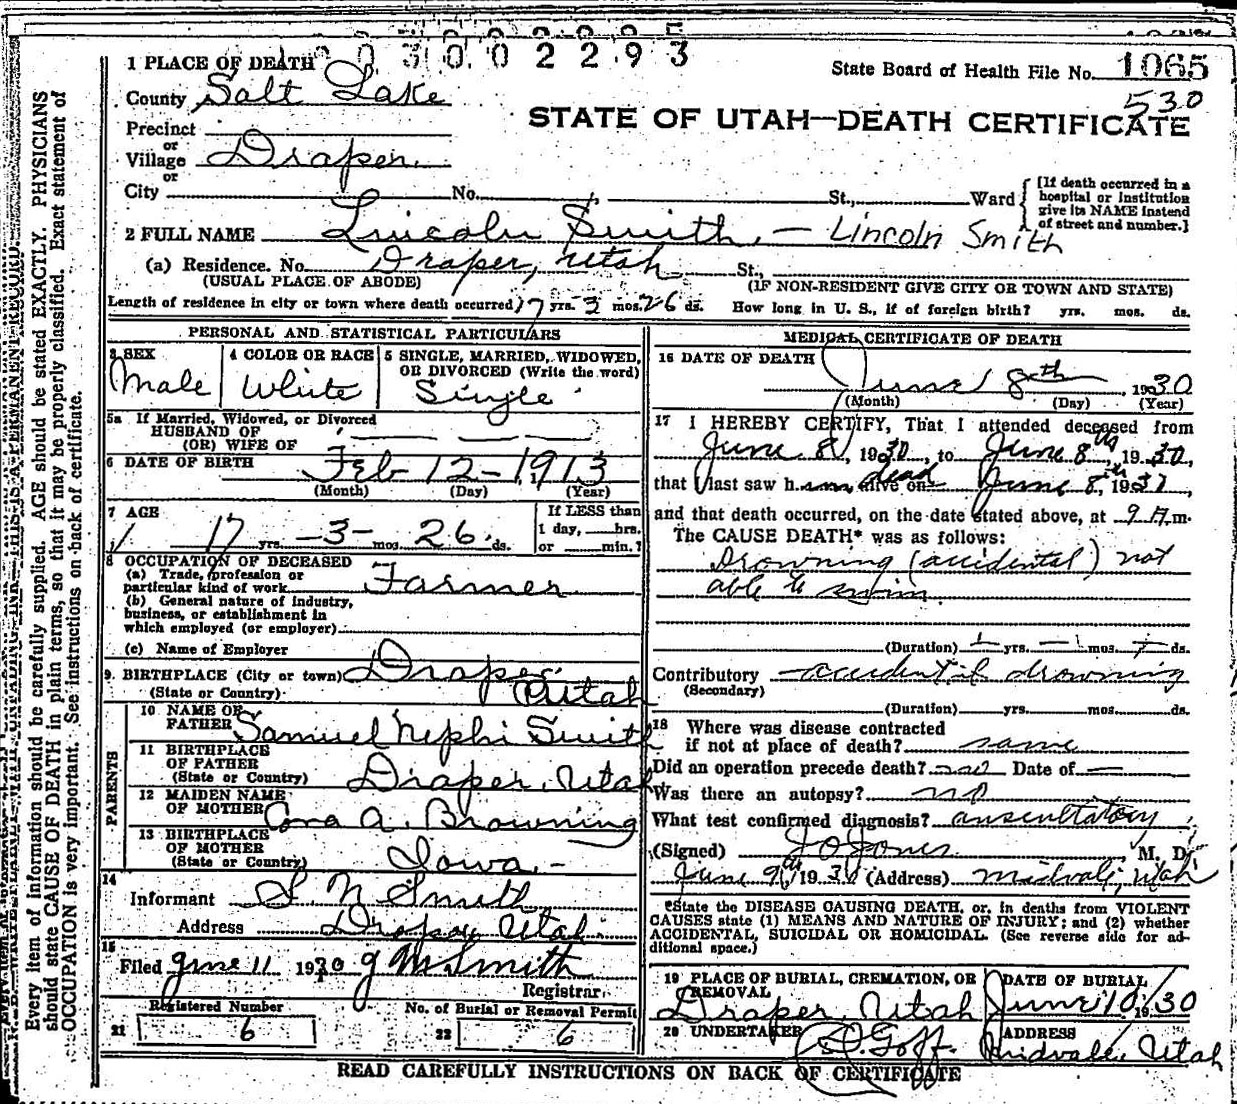 3 0 0 0 2 2 9 3
1 PLACE OF DEATH
State Board of Health File No. 1065
County Salt Lake
530
STATE OF UTAH—DEATH CERTIFICATE
Precinct
or
Village Draper
or
City No. St., Ward
[If death occurred in a
hospital or institution
give its NAME instead
of street and number.]
2 FULL NAME Lincoln Smith, — Lincoln Smith
(a) Residence. No. Draper, Utah St.,
(USUAL PLACE OF ABODE) (IF NON-RESIDENT GIVE CITY OR TOWN AND STATE)
Length of residence in city or town where death occurred 17 yrs. 3 mos. 26 ds. How long in U. S., if of foreign birth? yrs. mos. ds.
PERSONAL AND STATISTICAL PARTICULARS
3 SEX
Male
4 COLOR OR RACE
White
5 SINGLE, MARRIED, WIDOWED,
OR DIVORCED (Write the word)
Single
5a If Married, Widowed, or Divorced
HUSBAND OF
(OR) WIFE OF
6 DATE OF BIRTH Feb 12-1913
(Month) (Day) (Year)
7 AGE
17 yrs. -3- mos. 26 ds.
If LESS than
1 day, hrs.
or min.?
8 OCCUPATION OF DECEASED
(a) Trade, profession or
particular kind of work Farmer
(b) General nature of industry,
business, or establishment in
which employed (or employer)
(c) Name of Employer
9. BIRTHPLACE (City or town) Draper
(State or Country) Utah
PARENTS
10 NAME OF
FATHER Samuel Nephi Smith
11 BIRTHPLACE
OF FATHER
(State or Country) Draper, Utah
12 MAIDEN NAME
OF MOTHER Cora A. Browning
13 BIRTHPLACE
OF MOTHER
(State or Country) Iowa.-
14
Informant S. N. Smith
Address Draper Utah
15
Filed June 11 1930 J M Smith
Registrar.
Registered Number
21 6
No. of Burial or Removal Permit
22 6
MEDICAL CERTIFICATE OF DEATH
16 DATE OF DEATH
June 8th, 1930
(Month) (Day) (Year)
17 I HEREBY CERTIFY, That I attended deceased from
June 8, 1930, to June 8th, 1930,
that I last saw h alive on dead June 8th, 19
and that death occurred, on the date stated above, at 9 A m.
The CAUSE DEATH* was as follows:
Drowning (accidental) not
able to swim.
(Duration) yrs. mos. ds.
Contributory accidental drowning
(Secondary)
(Duration) yrs. mos. ds.
18 Where was disease contracted
if not at place of death? same
Did an operation precede death? no Date of —
Was there an autopsy? no
What test confirmed diagnosis? auscultatory
(Signed) J O Jones M. D.
June 9th, 1930 (Address) Midvale, Utah
*State the DISEASE CAUSING DEATH, or, in deaths from VIOLENT
CAUSES state (1) MEANS AND NATURE OF INJURY; and (2) whether
ACCIDENTAL, SUICIDAL OR HOMICIDAL. (See reverse side for ad-
ditional space.)
19 PLACE OF BURIAL, CREMATION, OR
REMOVAL
Draper, Utah
DATE OF BURIAL
June 10, 1930
20 UNDERTAKER
Goff.
ADDRESS
Midvale, Utah
READ CAREFULLY INSTRUCTIONS ON BACK OF CERTIFICATE
Every item of information should be carefully supplied. AGE should be stated EXACTLY. PHYSICIANS
should state CAUSE OF DEATH in plain terms, so that it may be properly classified. Exact statement of
OCCUPATION is very important. See instructions on back of certificate.